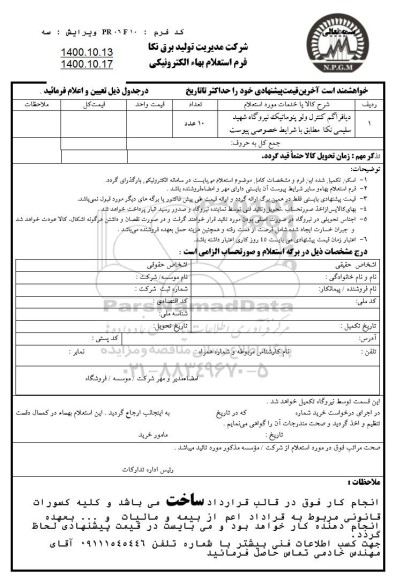 کد فرم : PR-06 F10 ویرایش : سه
شرکت مدیریت تولید برق نکا
فرم استعلام بهاء الکترونیکی
1400.10.13
1400.10.17
N.P.G.M
خواهشمند است آخرین قیمت پیشنهادی خود را حداکثر تا تاریخ درجدول ذیل تعیین و اعلام فرمائید .
ردیف شرح کالا یا خدمات مورد استعلام تعداد قیمت واحد قیمت کل ملاحظات
۱ دیافراگم کنترل ولو پنوماتیک نیروگاه شهید سلیمی نکا مطابق با شرایط خصوصی پیوست ۱۰ عدد
جمع کل به حروف:
تذکر مهم : زمان تحویل کالا حتماً قید گردد.
توضیحات:
۱- اسکن تکمیل شده این فرم و مشخصات کامل موضوع استعلام می‌بایست در سامانه الکترونیکی بارگذاری گردد.
۲- فرم استعلام بهاء و سایر شرایط پیوست آن بایستی دارای مهر و امضاء فروشنده باشد .
۳- قیمت پیشنهادی بایستی فقط در همین برگه ارائه گردد و ارائه قیمت طی پیش فاکتور یا برگه های دیگر مورد قبول نمی‌باشد.
۴- بهای کالا پس از اخذ صورتحساب، تحویل و تائید فنی توسط نماینده نیروگاه و صدور رسید انبار پرداخت خواهد شد .
۵- اجناس تحویلی در نیروگاه در صورت اصلی بودن مورد تائید قرار خواهند گرفت و در صورت نقصان و داشتن هرگونه اشکال، کالا عودت خواهد شد
و جبران خسارت ایجاد شده شامل فرصت از دست رفته و همچنین هزینه حمل بعهده فروشنده می‌باشد .
۶- اعتبار زمان قیمت پیشنهادی می بایست ۴۵ روز کاری اعتبار داشته باشد.
درج مشخصات ذیل در برگه استعلام و صورتحساب الزامی است :
اشخاص حقیقی اشخاص حقوقی
نام و نام خانوادگی : نام موسسه/ شرکت :
نام فروشنده / پیمانکار: شماره ثبت شرکت :
کد ملی: کد اقتصادی :
شناسه ملی:
تاریخ تکمیل : تاریخ تحویل:
آدرس: کد پستی :
تلفن : نام کارشناس مربوطه و شماره همراه نمابر :
ParsNamadData
۰۲۱-۸۸۳۴۹۶۷۰-۵
امضاء مدیر و مهر شرکت / موسسه / فروشگاه
این قسمت توسط نیروگاه تکمیل خواهد شد .
در اجرای درخواست خرید شماره که در تاریخ به اینجانب ارجاع گردید . این استعلام بهاء در کمال دقت
تنظیم و اخذ گردید و صحت مندرجات آن را گواهی می‌نمایم .
تاریخ : مامور خرید
صحت مراتب فوق در مورد استعلام از شرکت / مؤسسه مذکور مورد تائید می‌باشد .
رئیس اداره تدارکات
ملاحظات :
انجام کار فوق در قالب قرارداد ساخت می باشد و کلیه کسورات
قانونی مربوط به قراداد اعم از بیمه و مالیات و ... بعهده
انجام دهنده کار خواهد بود و می بایست در قیمت پیشنهادی لحاظ
گردد.
جهت کسب اطلاعات فنی بیشتر با شماره تلفن ۰۹۱۱۱۵۴۵۴۴۶ آقای
مهندس خادمی تماس حاصل فرمائید